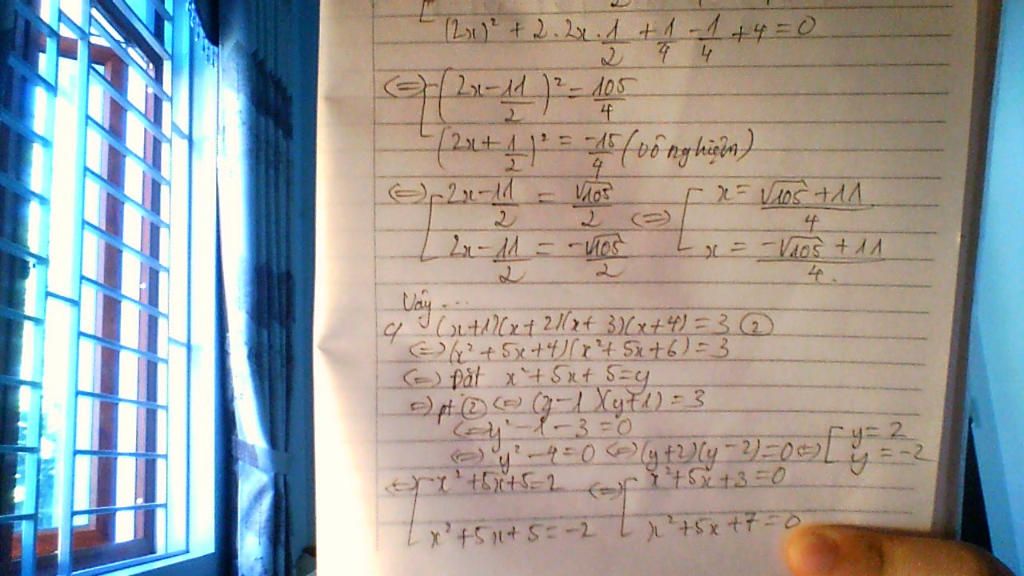 (2x)² + 2.2x.1/2 + 1/4 - 1/4 + 4 = 0
<=> [ (2x - 11/2)² = 105/4
(2x + 1/2)² = -15/4 (vô nghiệm)
<=> [ 2x - 11/2 = √105/2 <=> [ x = (√105 + 11)/4
2x - 11/2 = -√105/2 x = (-√105 + 11)/4.
Vậy ...
c/ (x+1)(x+2)(x+3)(x+4) = 3 ②
<=> (x² + 5x + 4)(x² + 5x + 6) = 3
<=> Đặt x² + 5x + 5 = y
=> pt ② <=> (y - 1)(y + 1) = 3
<=> y² - 1 - 3 = 0
<=> y² - 4 = 0 <=> (y+2)(y-2) = 0 <=> [ y = 2
y = -2
<=> [ x² + 5x + 5 = 2 <=> [ x² + 5x + 3 = 0
x² + 5x + 5 = -2 x² + 5x + 7 = 0